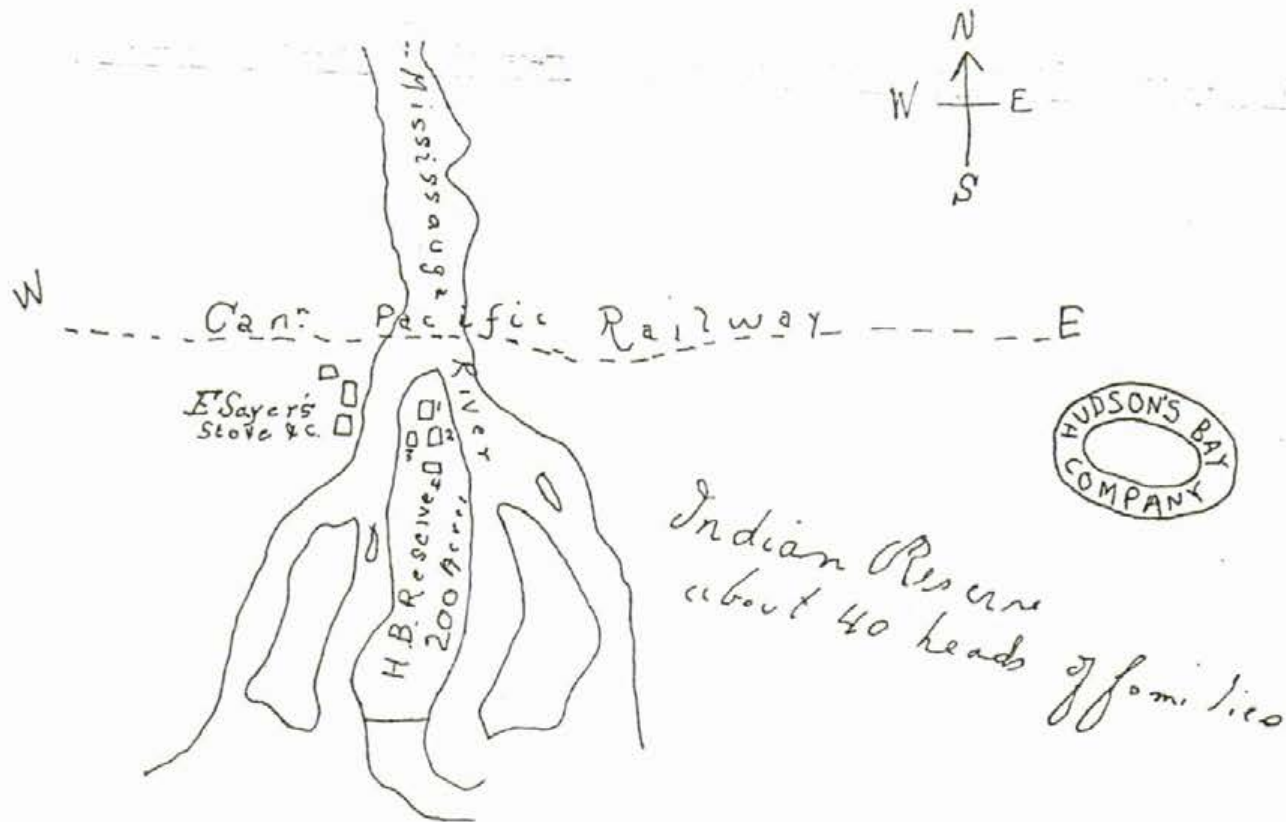 N
W E
S
Mississauga
W Can.n Pacific Railway E
River
E Sayer's
Store &c.
1
2
3
4
H.B. Reserve
200 Acres
HUDSON'S BAY
COMPANY
Indian Reserve
about 40 heads of families